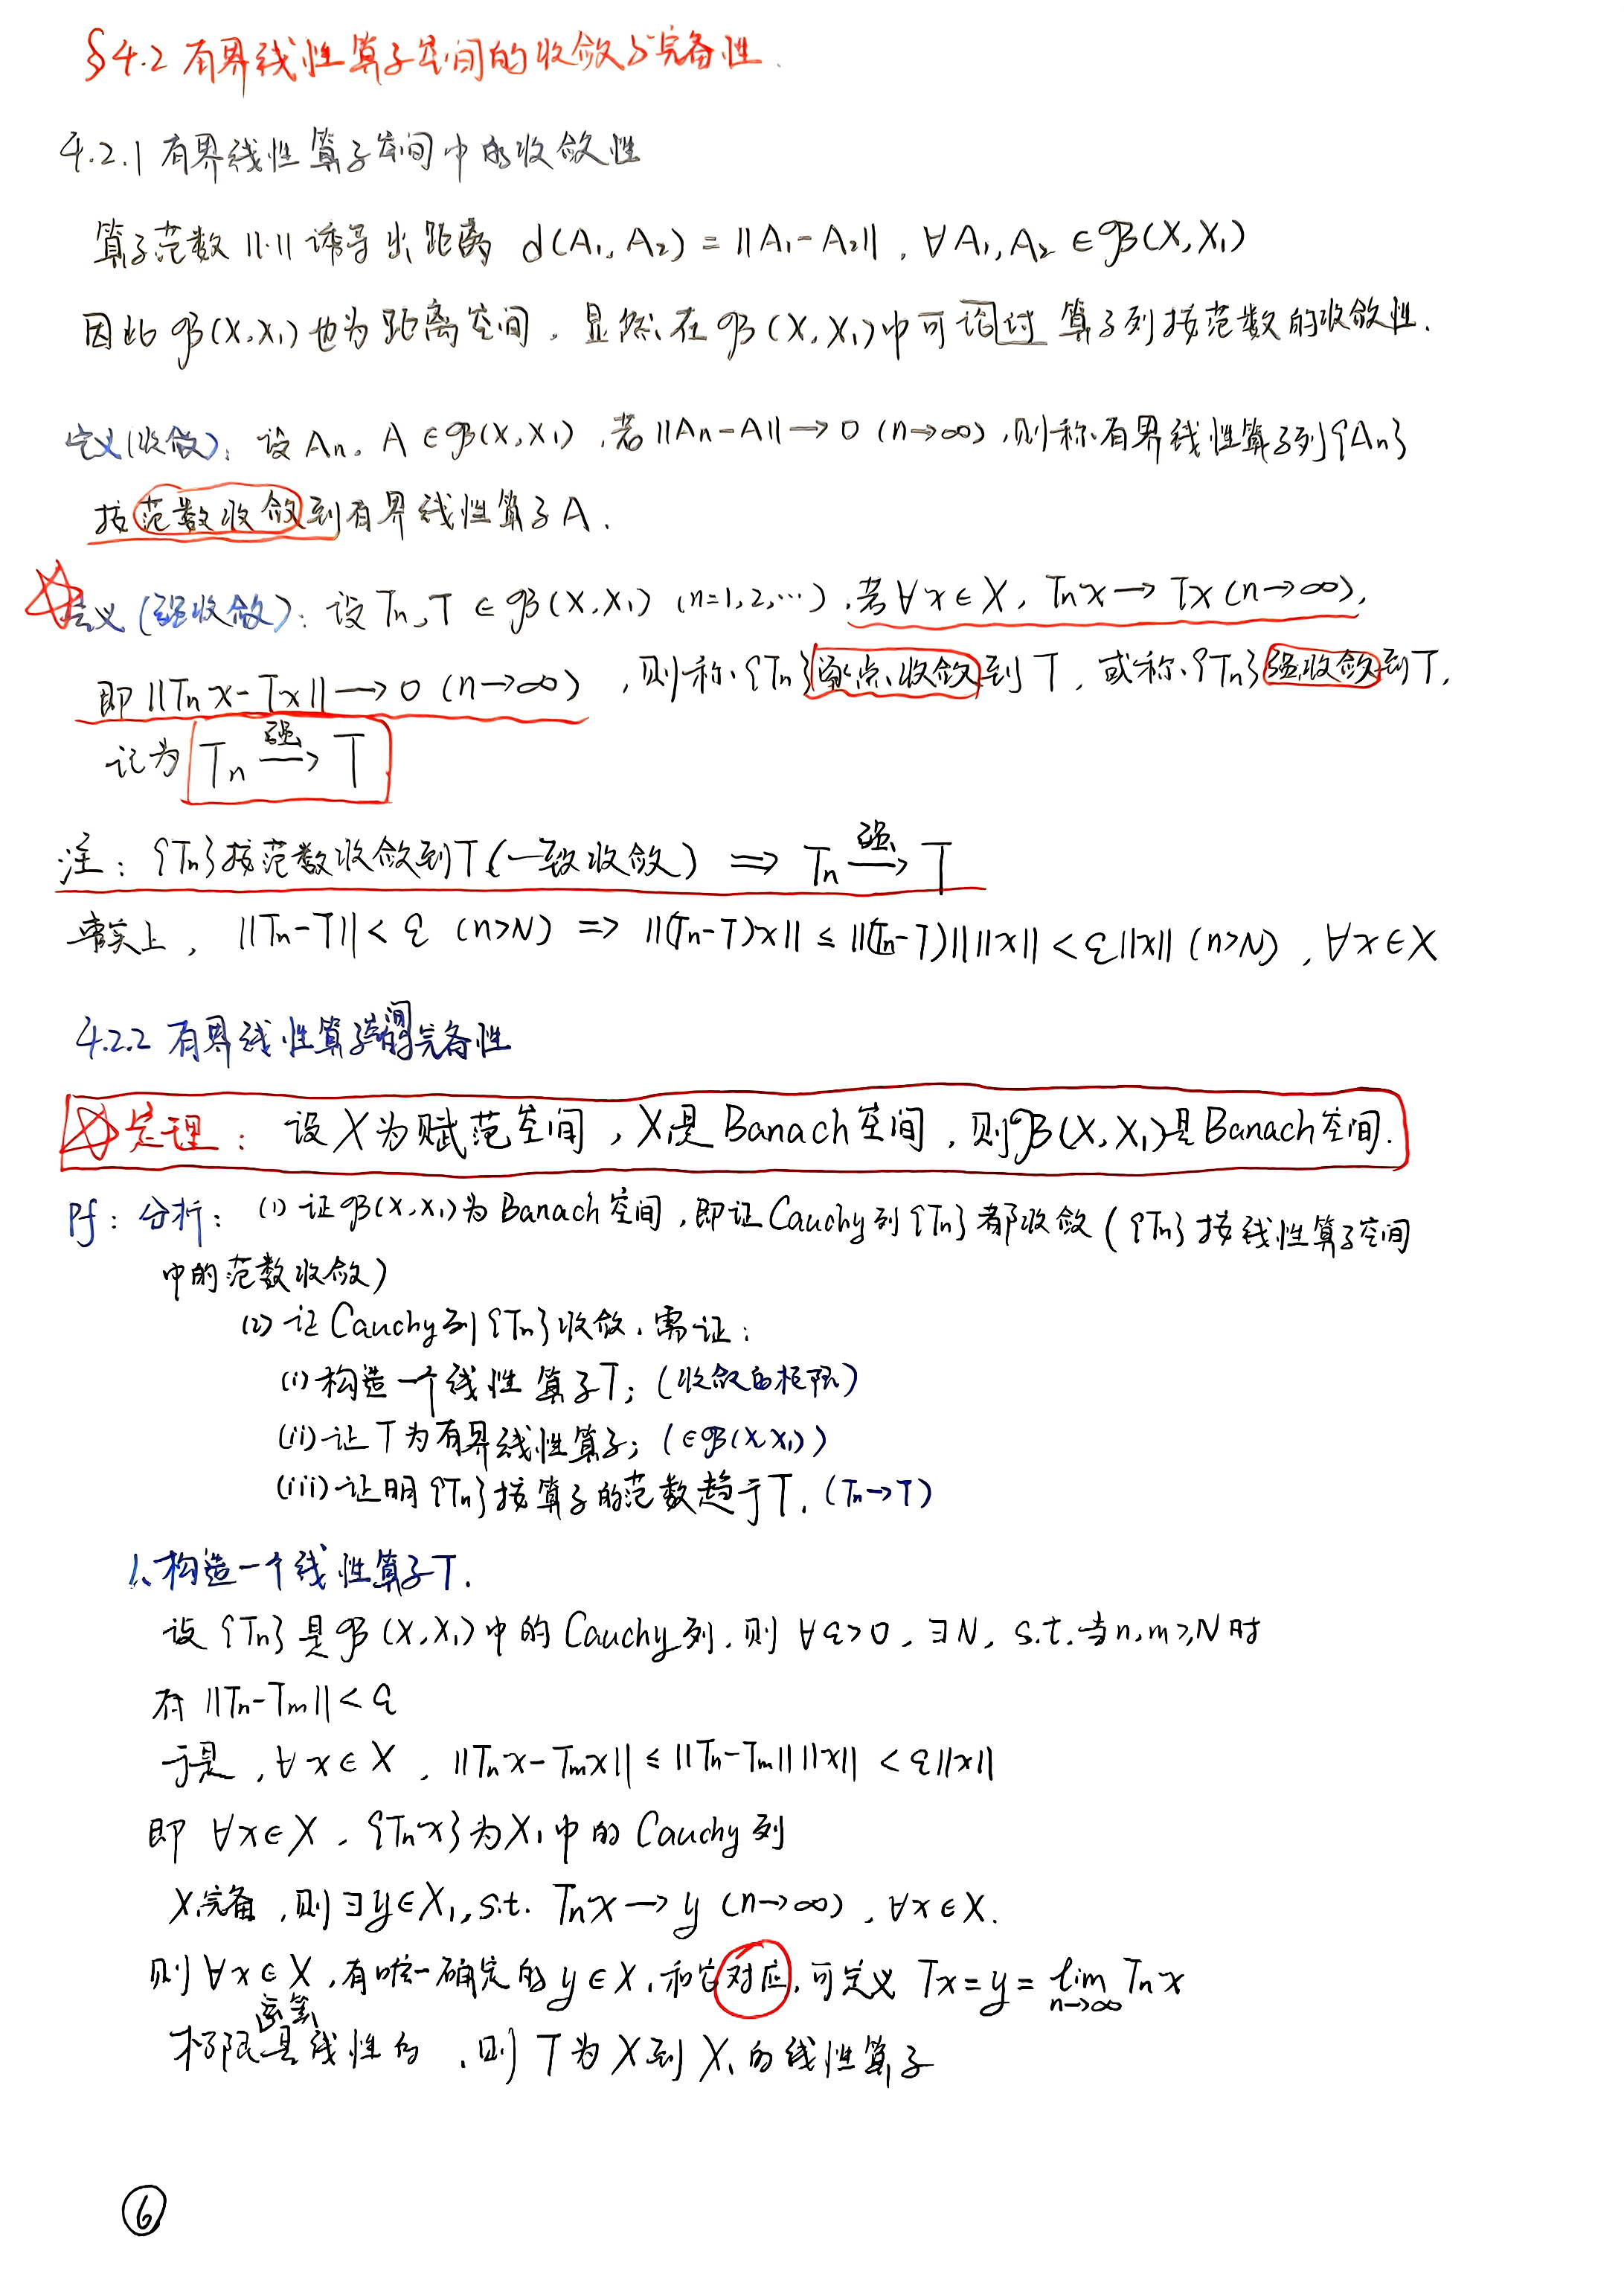 §4.2 有界线性算子空间的收敛与完备性.
4.2.1 有界线性算子空间中的收敛性
算子范数 ||·|| 诱导出距离 d(A₁, A₂) = ||A₁-A₂||, ∀A₁, A₂ ∈ 𝓑(X, X₁)
因此 𝓑(X, X₁) 也为距离空间, 显然在 𝓑(X, X₁) 中可讨论 算子列按范数的收敛性.
定义(收敛): 设 Aₙ, A ∈ 𝓑(X, X₁), 若 ||Aₙ-A|| → 0 (n→∞), 则称有界线性算子列{Aₙ}
按范数收敛到有界线性算子 A.
定义(强收敛): 设 Tₙ, T ∈ 𝓑(X, X₁) (n=1,2,…), 若 ∀x∈X, Tₙx → Tx (n→∞),
即 ||Tₙx-Tx|| → 0 (n→∞), 则称{Tₙ}逐点收敛到 T, 或称{Tₙ}强收敛到T,
记为 Tₙ —强→ T
注: {Tₙ}按范数收敛到T(一致收敛) ⇒ Tₙ —强→ T
事实上, ||Tₙ-T|| < ε (n>N) => ||(Tₙ-T)x|| ≤ ||(Tₙ-T)|| ||x|| < ε||x|| (n>N), ∀x∈X
4.2.2 有界线性算子空间的完备性
定理: 设 X 为赋范空间, X₁是 Banach 空间, 则𝓑(X, X₁)是 Banach 空间.
Pf: 分析: (1) 证𝓑(X, X₁)为 Banach 空间, 即证 Cauchy 列{Tₙ}都收敛 ({Tₙ}按线性算子空间
中的范数收敛)
(2) 证 Cauchy 列{Tₙ}收敛, 需证:
(i) 构造一个线性算子T; (收敛的极限)
(ii) 证 T 为有界线性算子; (∈𝓑(X, X₁))
(iii) 证明{Tₙ}按算子的范数趋于T. (Tₙ→T)
1、构造一个线性算子T.
设{Tₙ}是 𝓑(X, X₁)中的 Cauchy 列, 则 ∀ε>0, ∃N, s.t. 当n,m≥N时
有 ||Tₙ-Tₘ|| < ε
于是, ∀x∈X, ||Tₙx-Tₘx|| ≤ ||Tₙ-Tₘ|| ||x|| < ε||x||
即 ∀x∈X, {Tₙx}为X₁中的 Cauchy 列
X₁完备, 则∃y∈X₁, s.t. Tₙx → y (n→∞), ∀x∈X.
则∀x∈X, 有唯一确定的 y∈X₁和它对应, 可定义 Tx = y = lim_{n→∞} Tₙx
极限运算是线性的, 则 T 为 X 到 X₁的线性算子
⑥